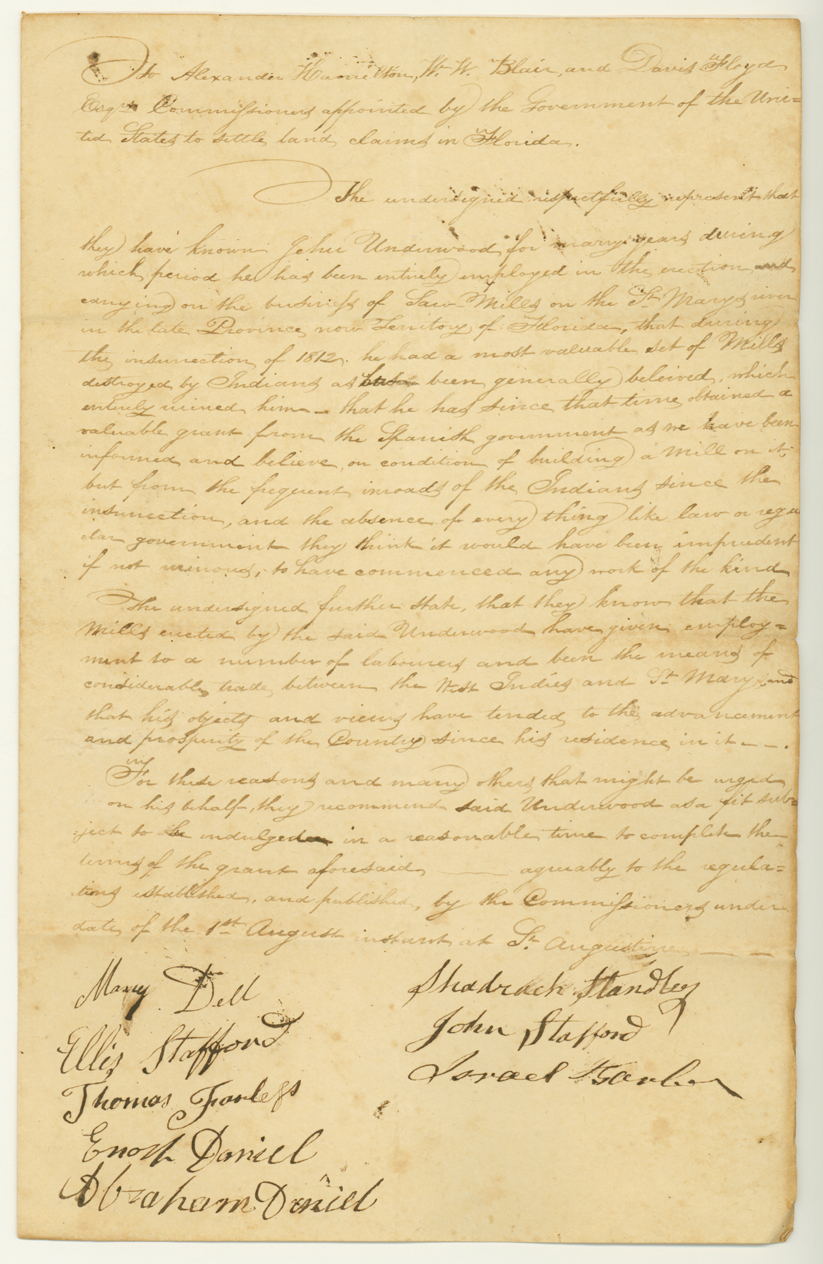 To Alexander Hamilton, W. W. Blair, and Davis Floyd
Esqrs Commissioners appointed by the Government of the Uni=
ted States to settle land claims in Florida.
The undersigned respectfully represent that
they have known Jehu Underwood for many years during
which period he has been entirely employed in the erection and
carrying on the business of Saw Mills on the St. Marys river
in the late Province now Territory of Florida, that during
the insurrection of 1812. he had a most valuable set of Mills
destroyed by Indians as been generally beleived, which
entirely ruined him — that he has since that time obtained a
valuable grant from the Spanish government as we have been
informed and believe, on condition of building a Mill on it,
but from the frequent inroads of the Indians since the
insurrection, and the absence of every thing like law or regu
lar government they think it would have been imprudent
if not ruinous, to have commenced any work of the kind
The undersigned further state, that they know that the
Mills erected by the said Underwood have given employ=
ment to a number of labourers and been the means of
considerable trade between the West Indies and St Marys, and
that his objects and views have tended to the advancement
and prosperity of the Country since his residence in it — — .
For these reasons and many others that might be urged
on his behalf, they recommend said Underwood as a fit sub=
ject to be indulged in a reasonable time to complete the
terms of the grant aforesaid —— agreeably to the regula=
tions established, and published, by the Commissioners under
date of the 1st August instant at St. Augustine — — —
Maxey Dell
Ellis Stafford
Thomas Farless
Enoch Daniel
Abraham Daniel
Shadrach Standley
John Stafford
Israel Barber